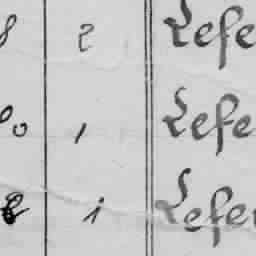 8 2 Lefe
80 1 Lefe
2 1 Lefe